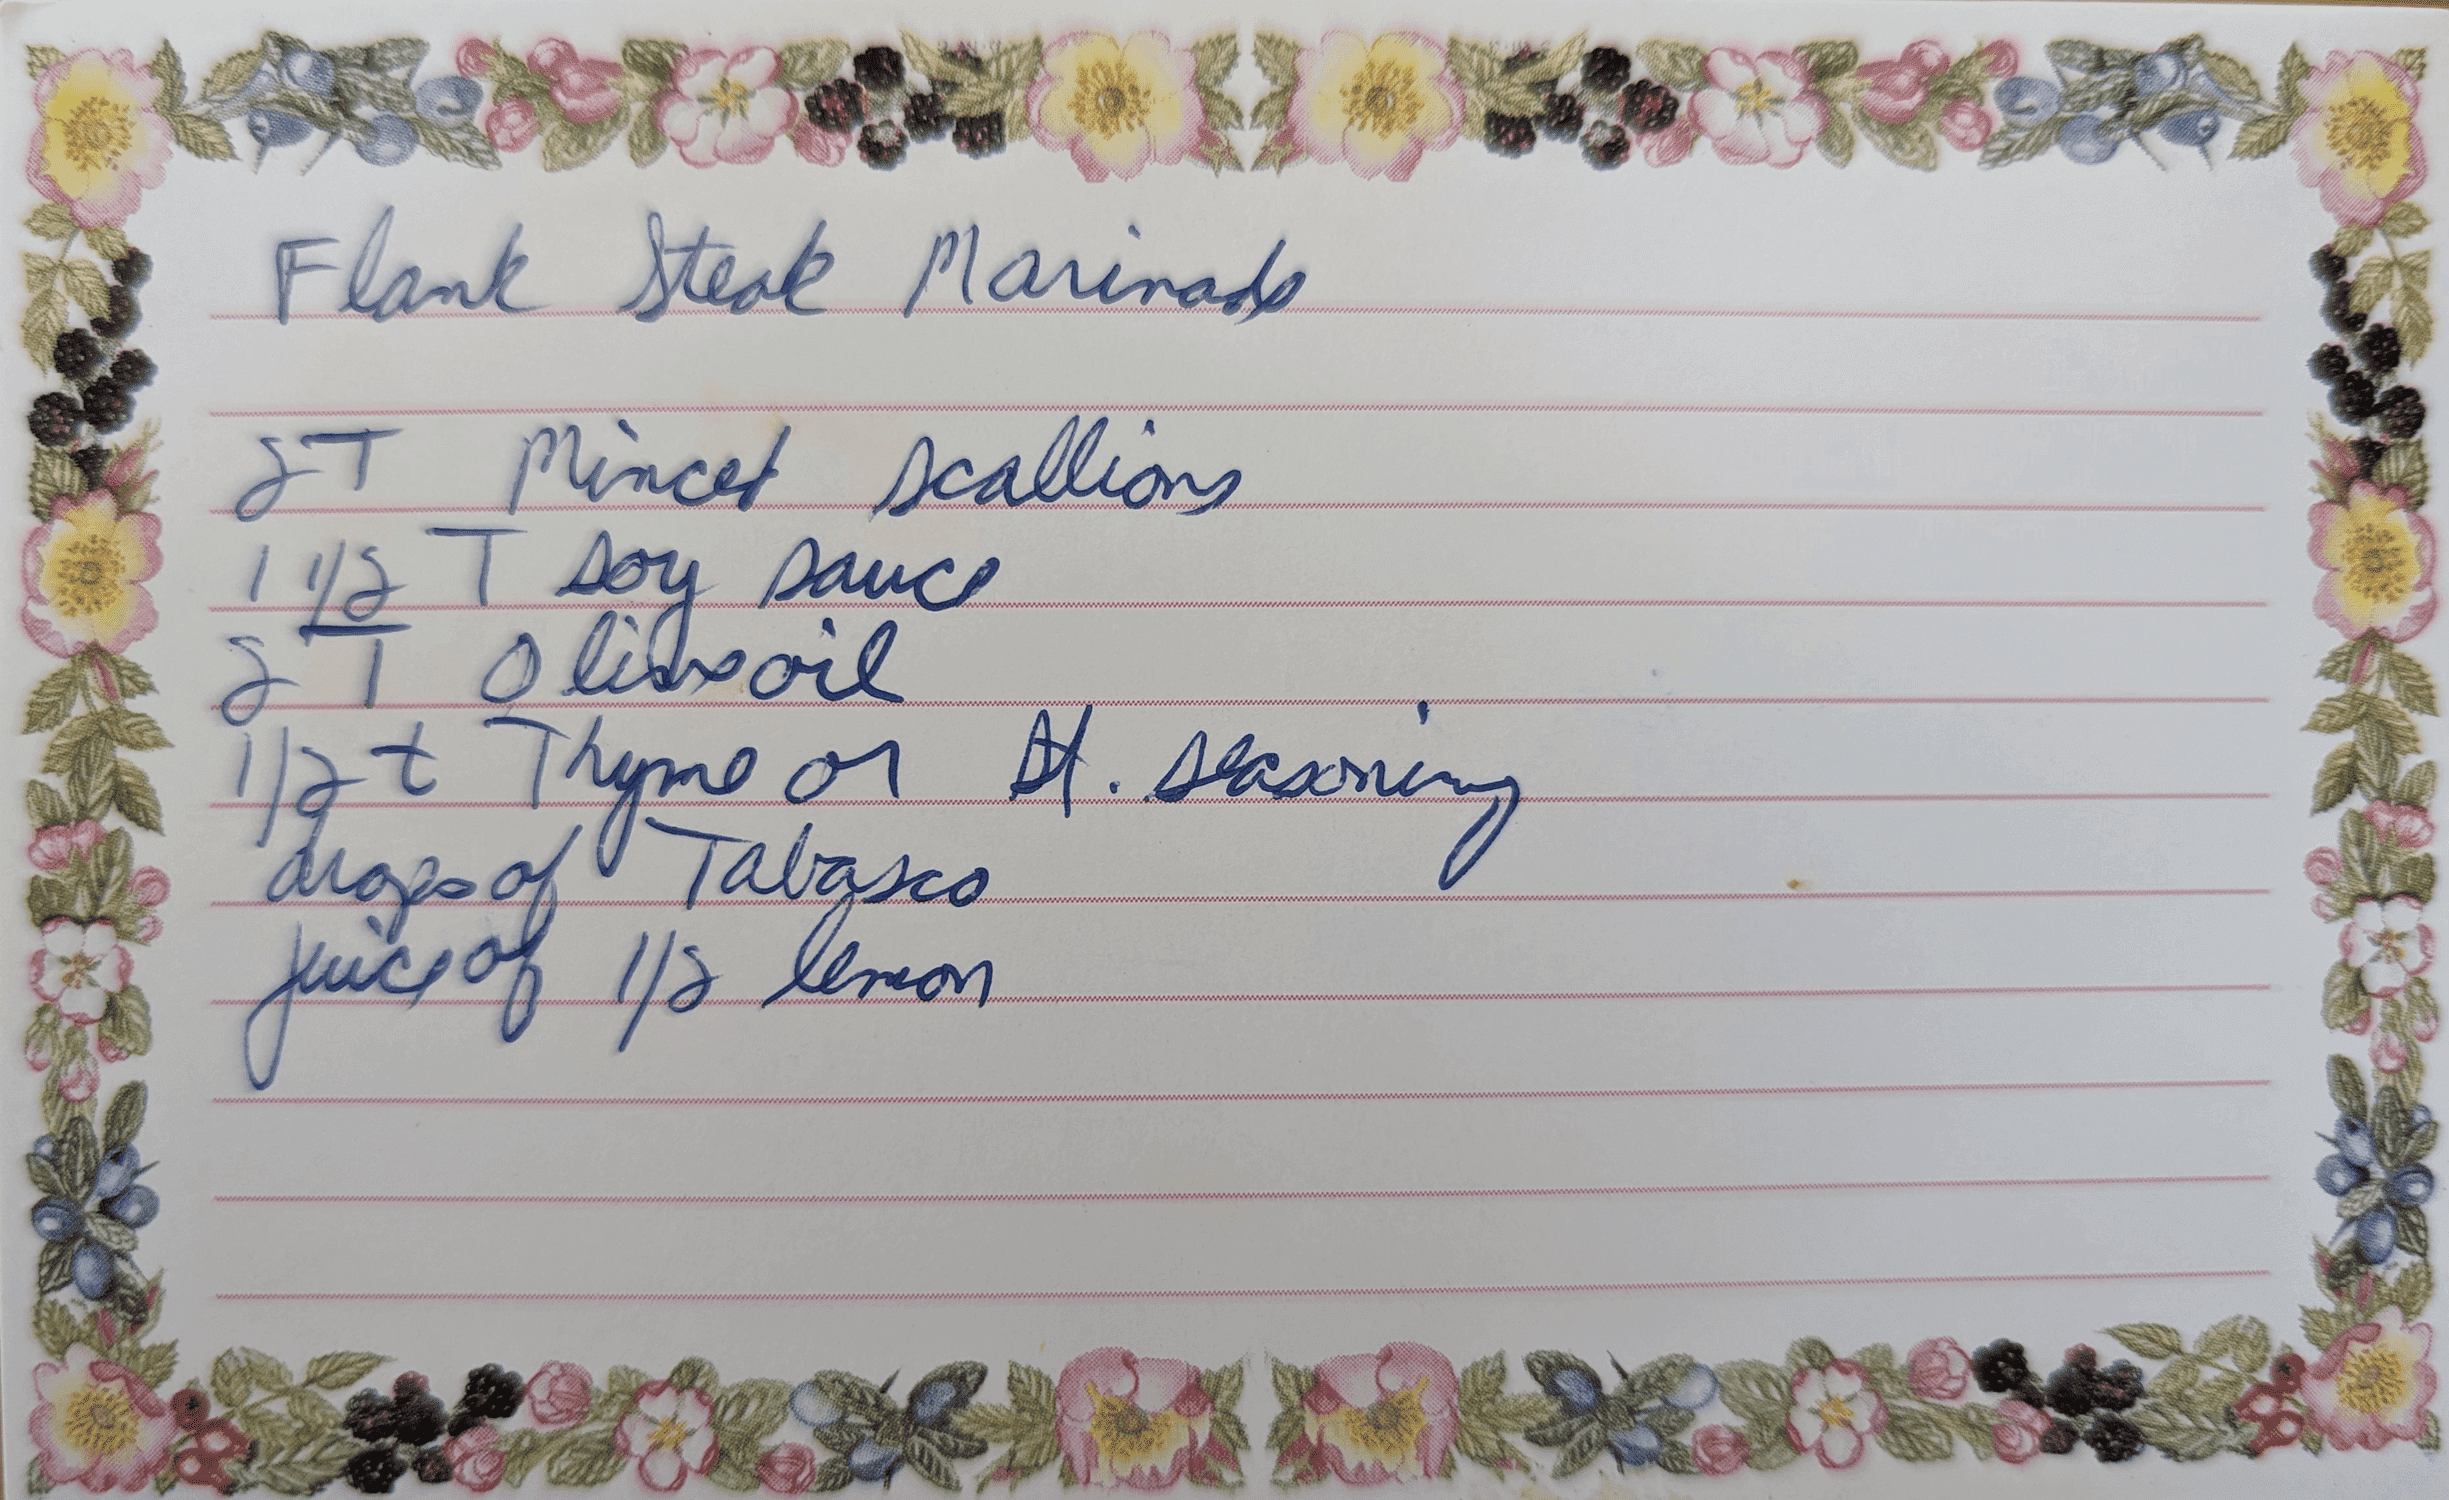 Flank Steak Marinade
2T Minced scallions
1 1/2 T soy sauce
2 T Olive oil
1/2 t Thyme or It. seasoning
drops of Tabasco
juice of 1/2 lemon